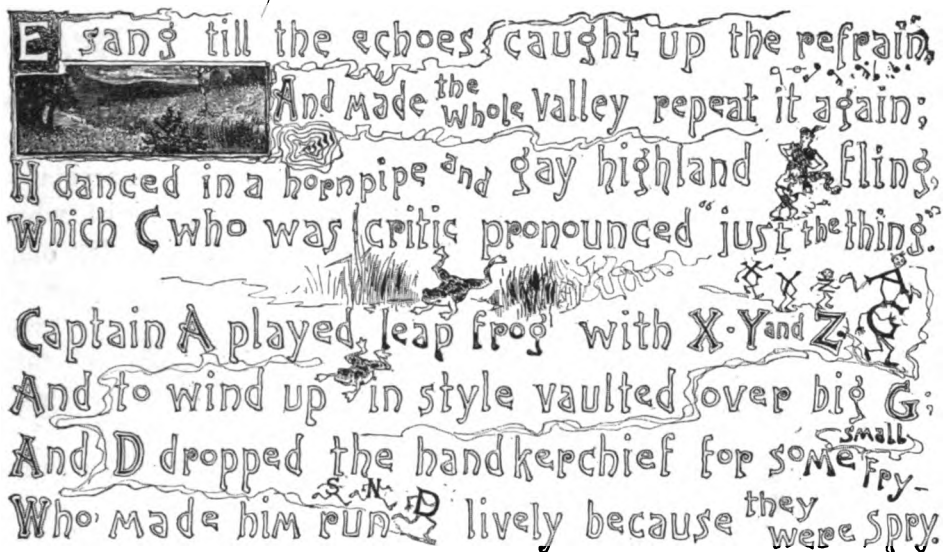 E sang till the echoes caught up the refrain,
And made the whole valley repeat it again;
H danced in a hornpipe and gay highland fling,
Which C who was critic pronounced "just the thing."
X Y Z A G
Captain A played leap frog with X. Y and Z
And to wind up in style vaulted over big G;
And D dropped the handkerchief for some small fry—
S N D
Who made him run lively because they were spry.